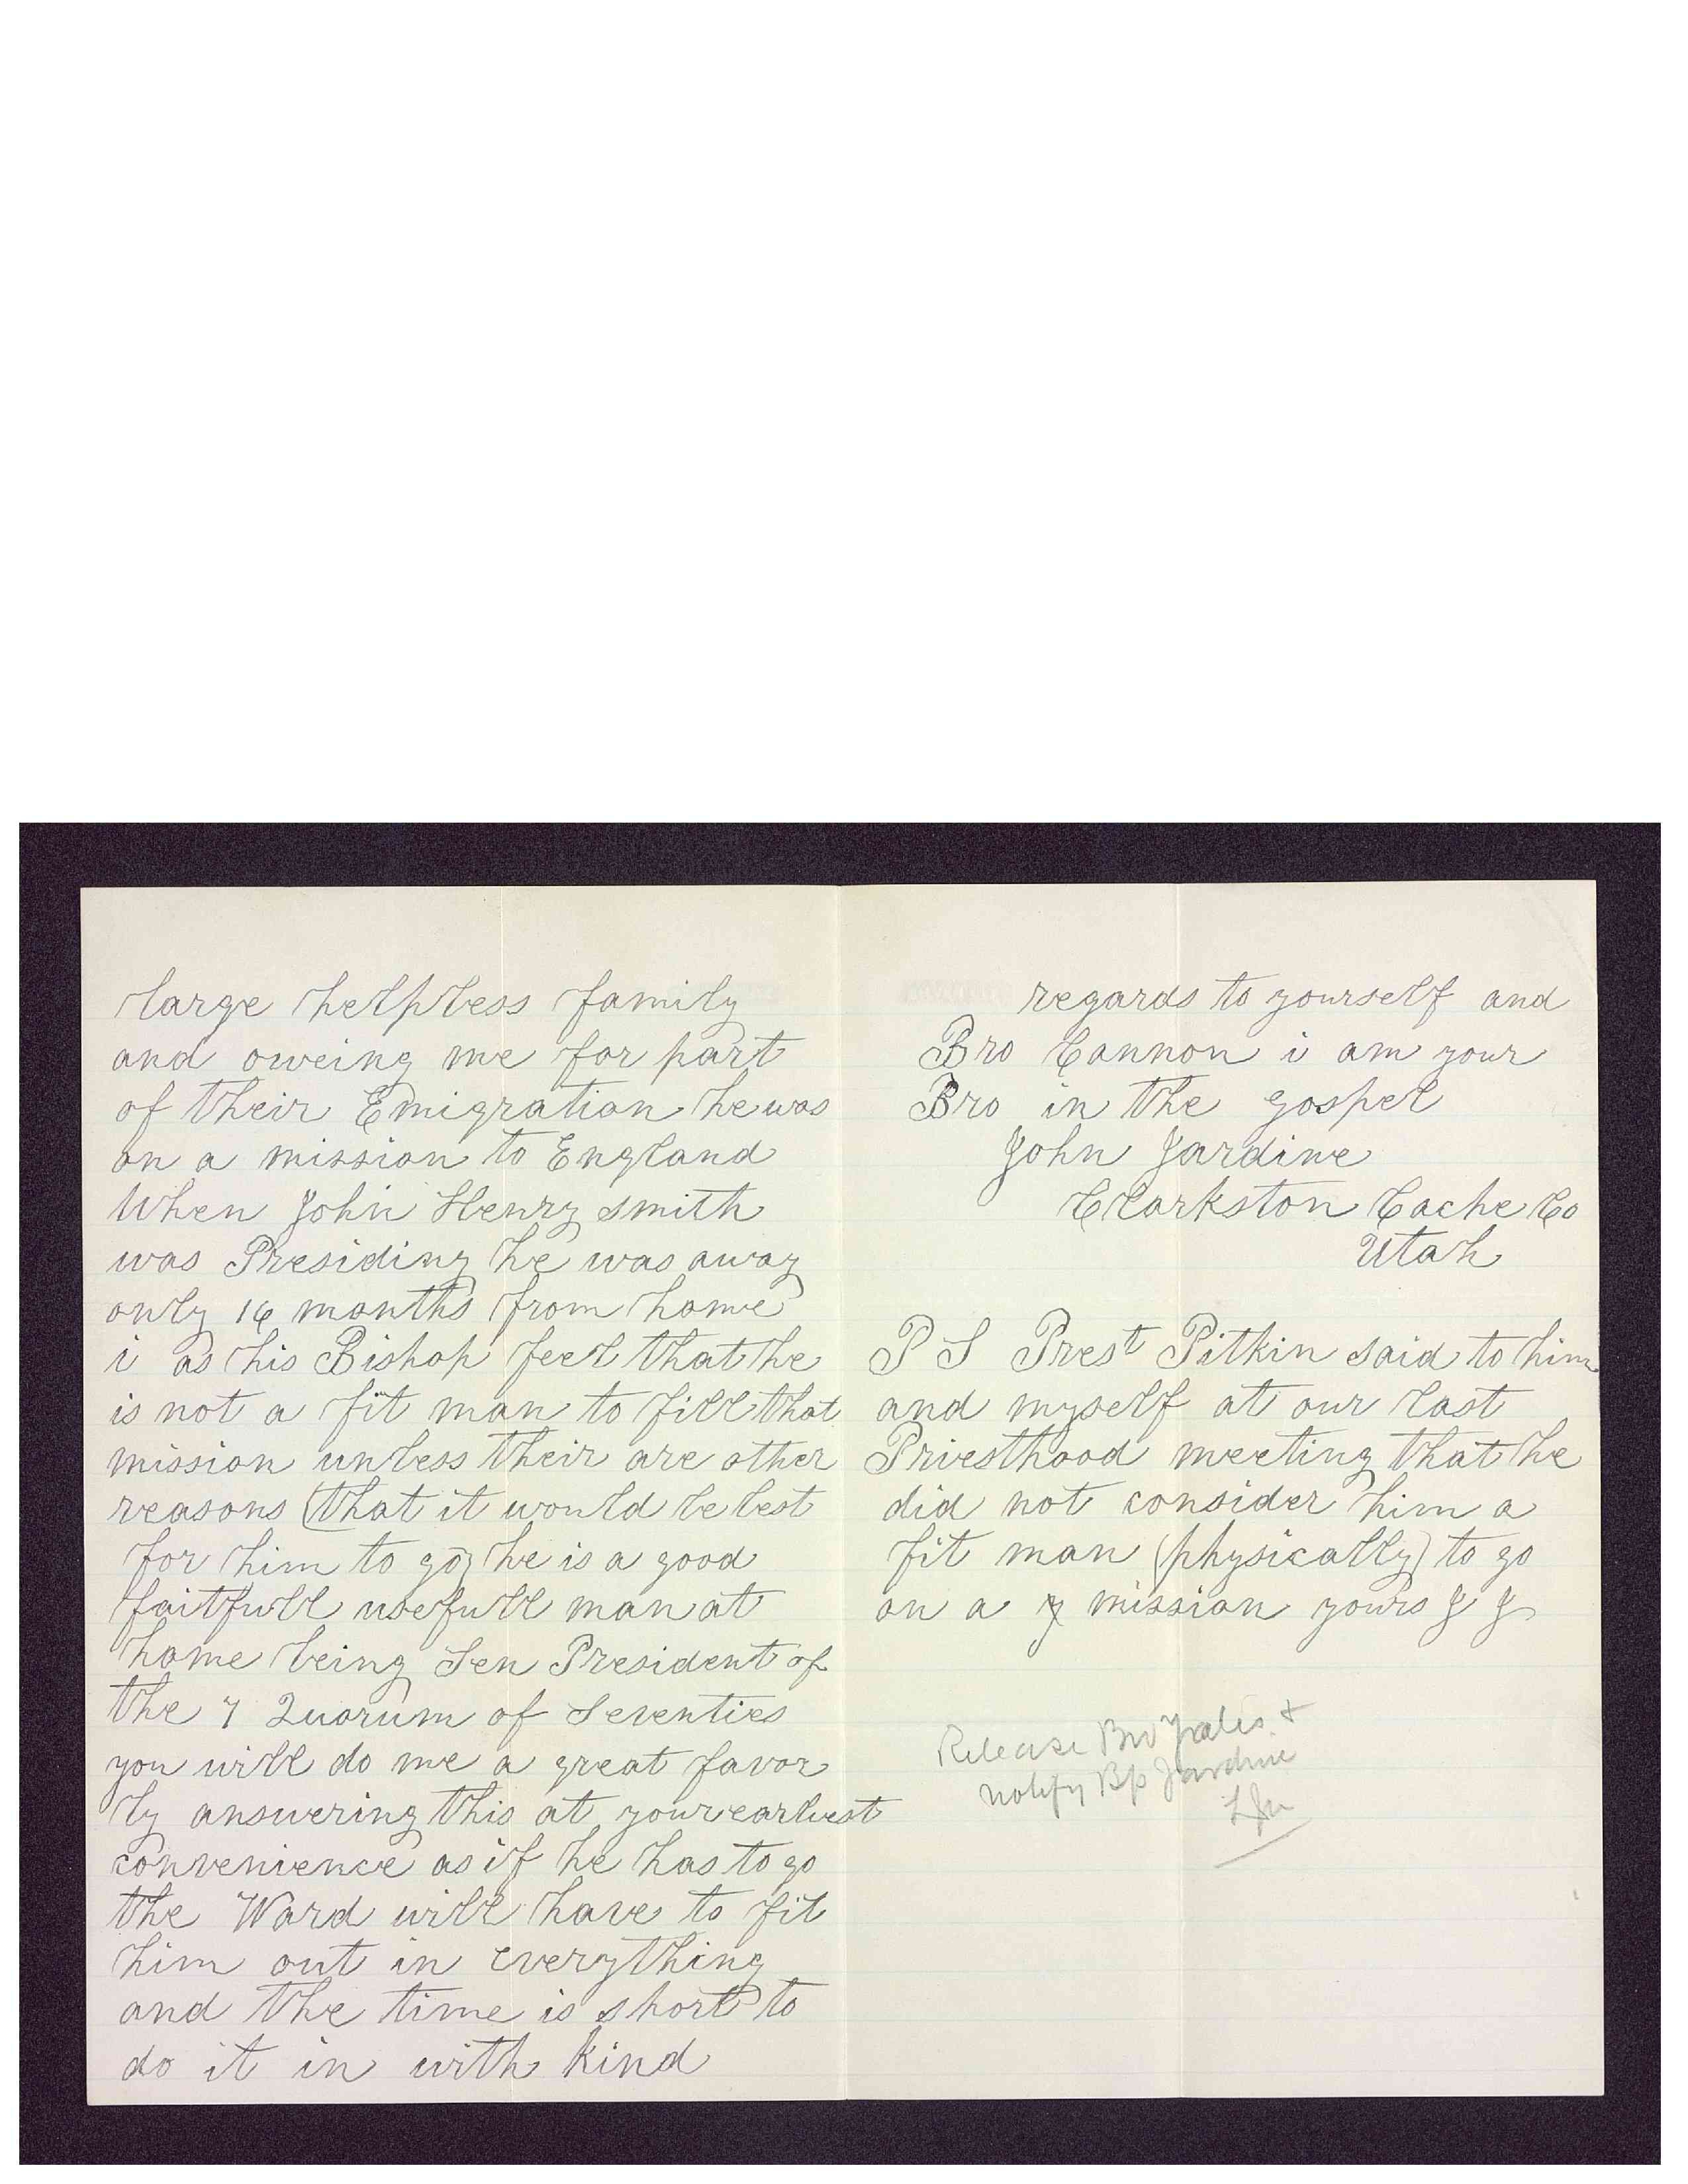 large helpless family
and oweing me for part
of their Emigration he was
on a mission to England
When John Henry Smith
was Presiding he was away
only 16 months from home
i as his Bishop feel that he
is not a fit man to fill that
mission unless their are other
reasons (that it would be best
for him to go) he is a good
faitfull usefull man at
home being Sen President of
the 7 Quorum of Seventies
you will do me a great favor
by answering this at your earliest
convenience as if he has to go
the Ward will have to fit
him out in everything
and the time is short to
do it in with kind
regards to yourself and
Bro Cannon i am your
Bro in the gospel
John Jardine
Clarkston Cache Co
Utah
P S Prest Pitkin said to him
and myself at our last
Priesthood meeting that he
did not consider him a
fit man (physically) to go
on a mission yours J J
Release Bro &
notify Bp Jardine